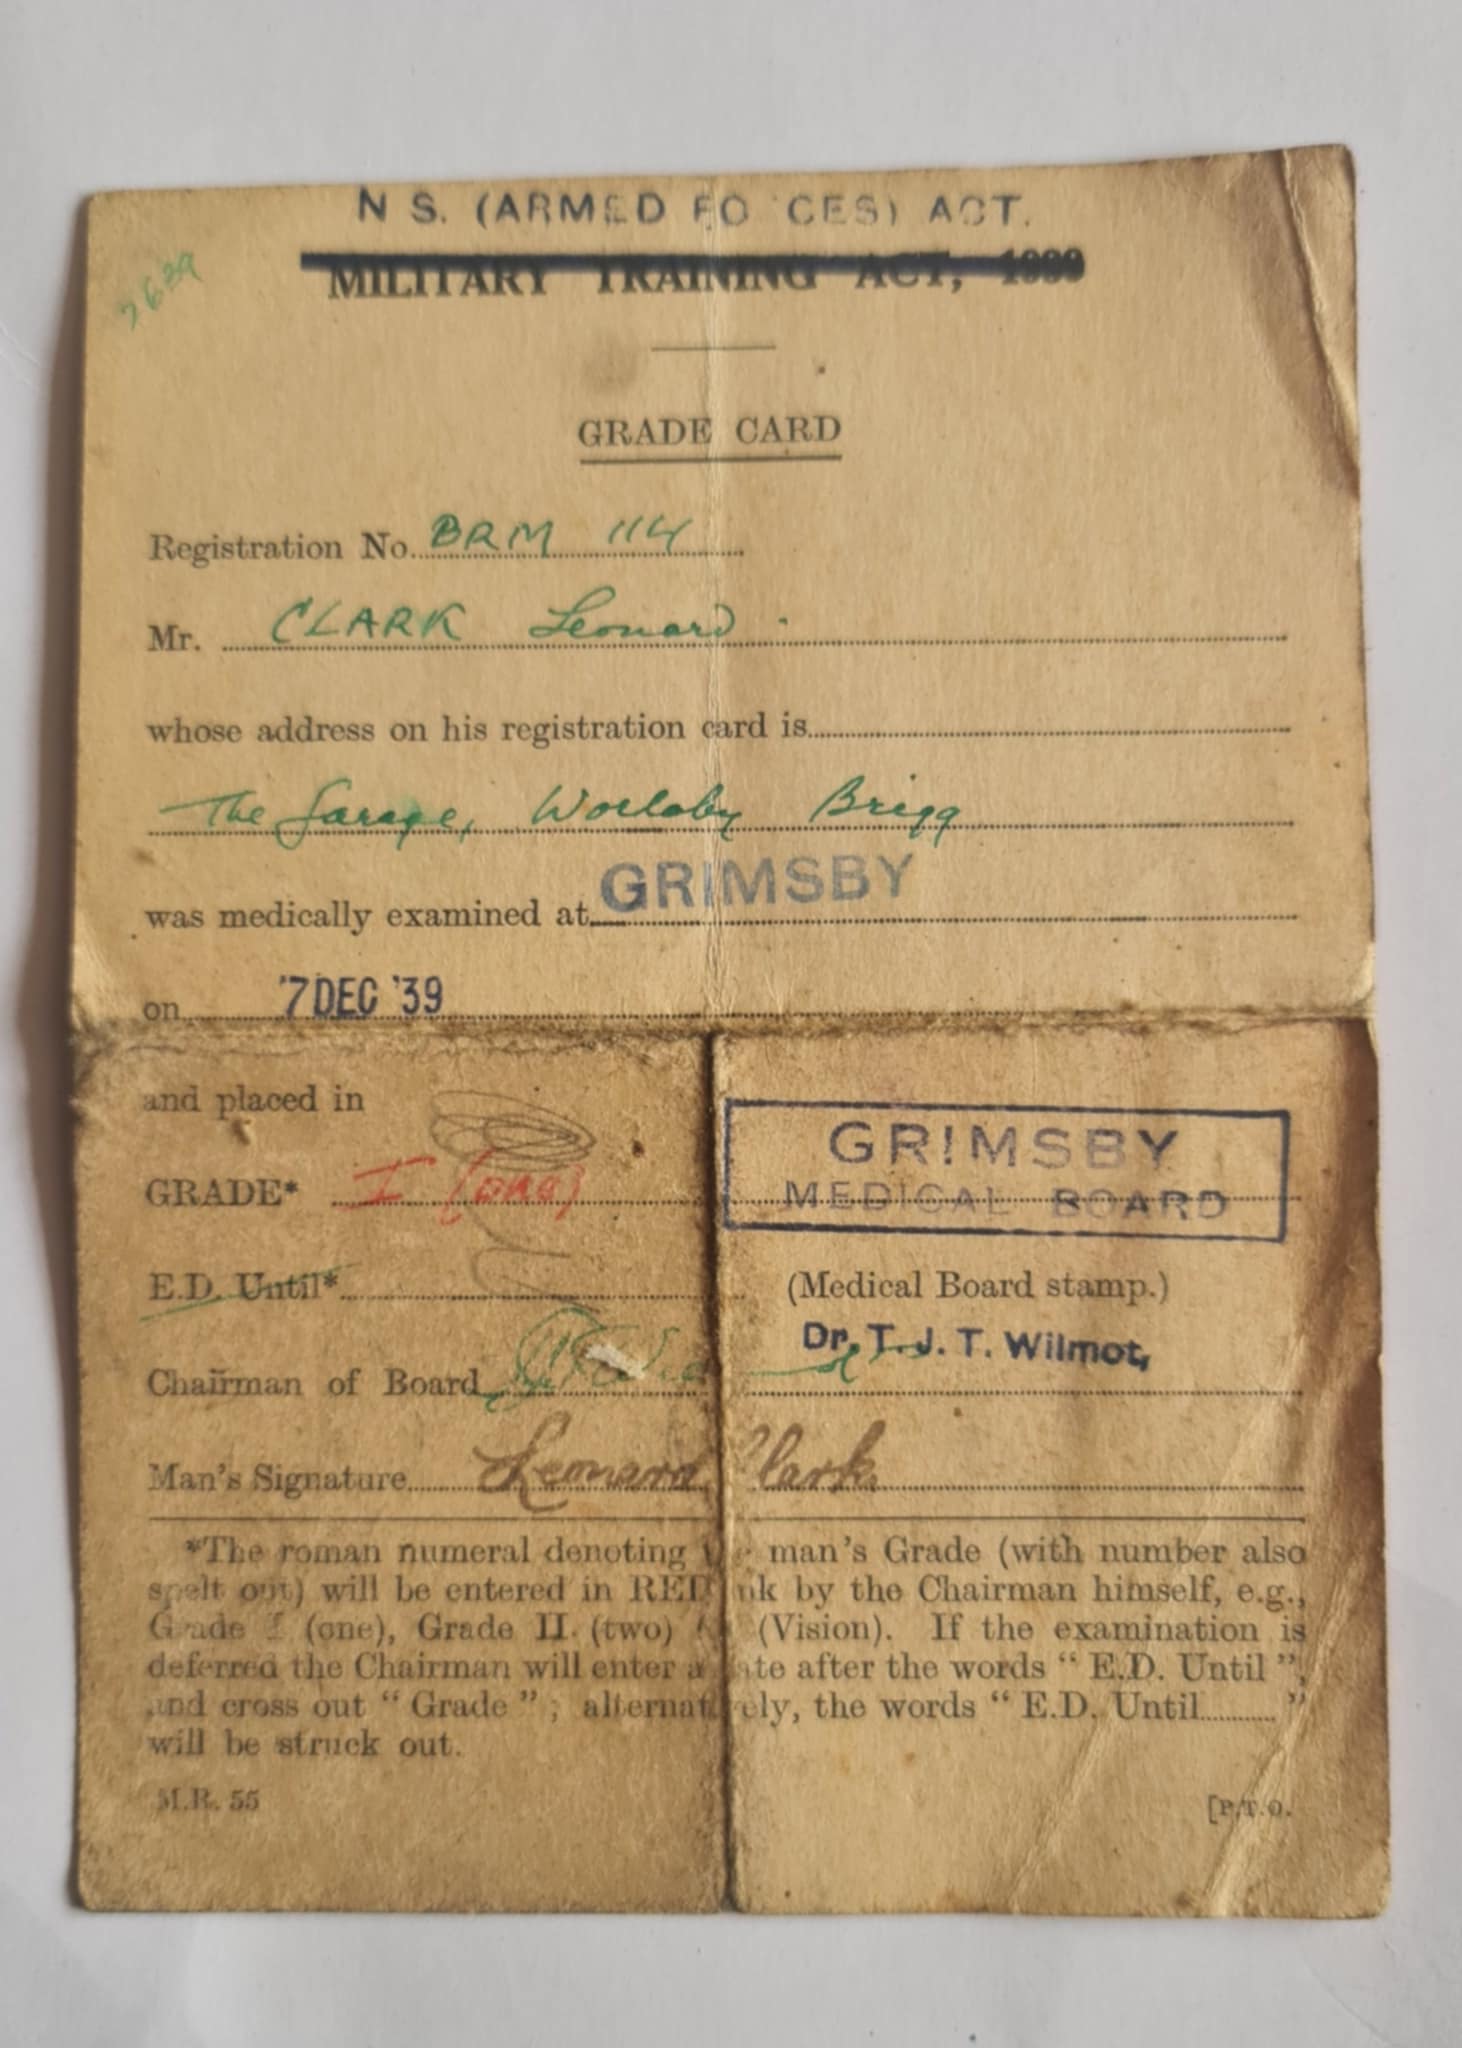 N S. (ARMED FO CES) ACT.
MILITARY TRAINING ACT, 1939
7639
GRADE CARD
Registration No. BRM 114
Mr. CLARK Leonard
whose address on his registration card is
The Garage, Worlaby Brigg
was medically examined at GRIMSBY
on 7 DEC '39
and placed in
GRADE* I (one)
GRIMSBY
MEDICAL BOARD
E.D. Until*
(Medical Board stamp.)
Dr. T. J. T. Wilmot,
Chairman of Board
Man's Signature Leonard Clark.
*The roman numeral denoting man's Grade (with number also
spelt out) will be entered in RED ink by the Chairman himself, e.g.,
Grade I (one), Grade II. (two) (Vision). If the examination is
deferred the Chairman will enter a date after the words “ E.D. Until ”,
and cross out “ Grade ” ; alternatively, the words “ E.D. Until......... ”
will be struck out.
M.R. 55
[P.T.O.